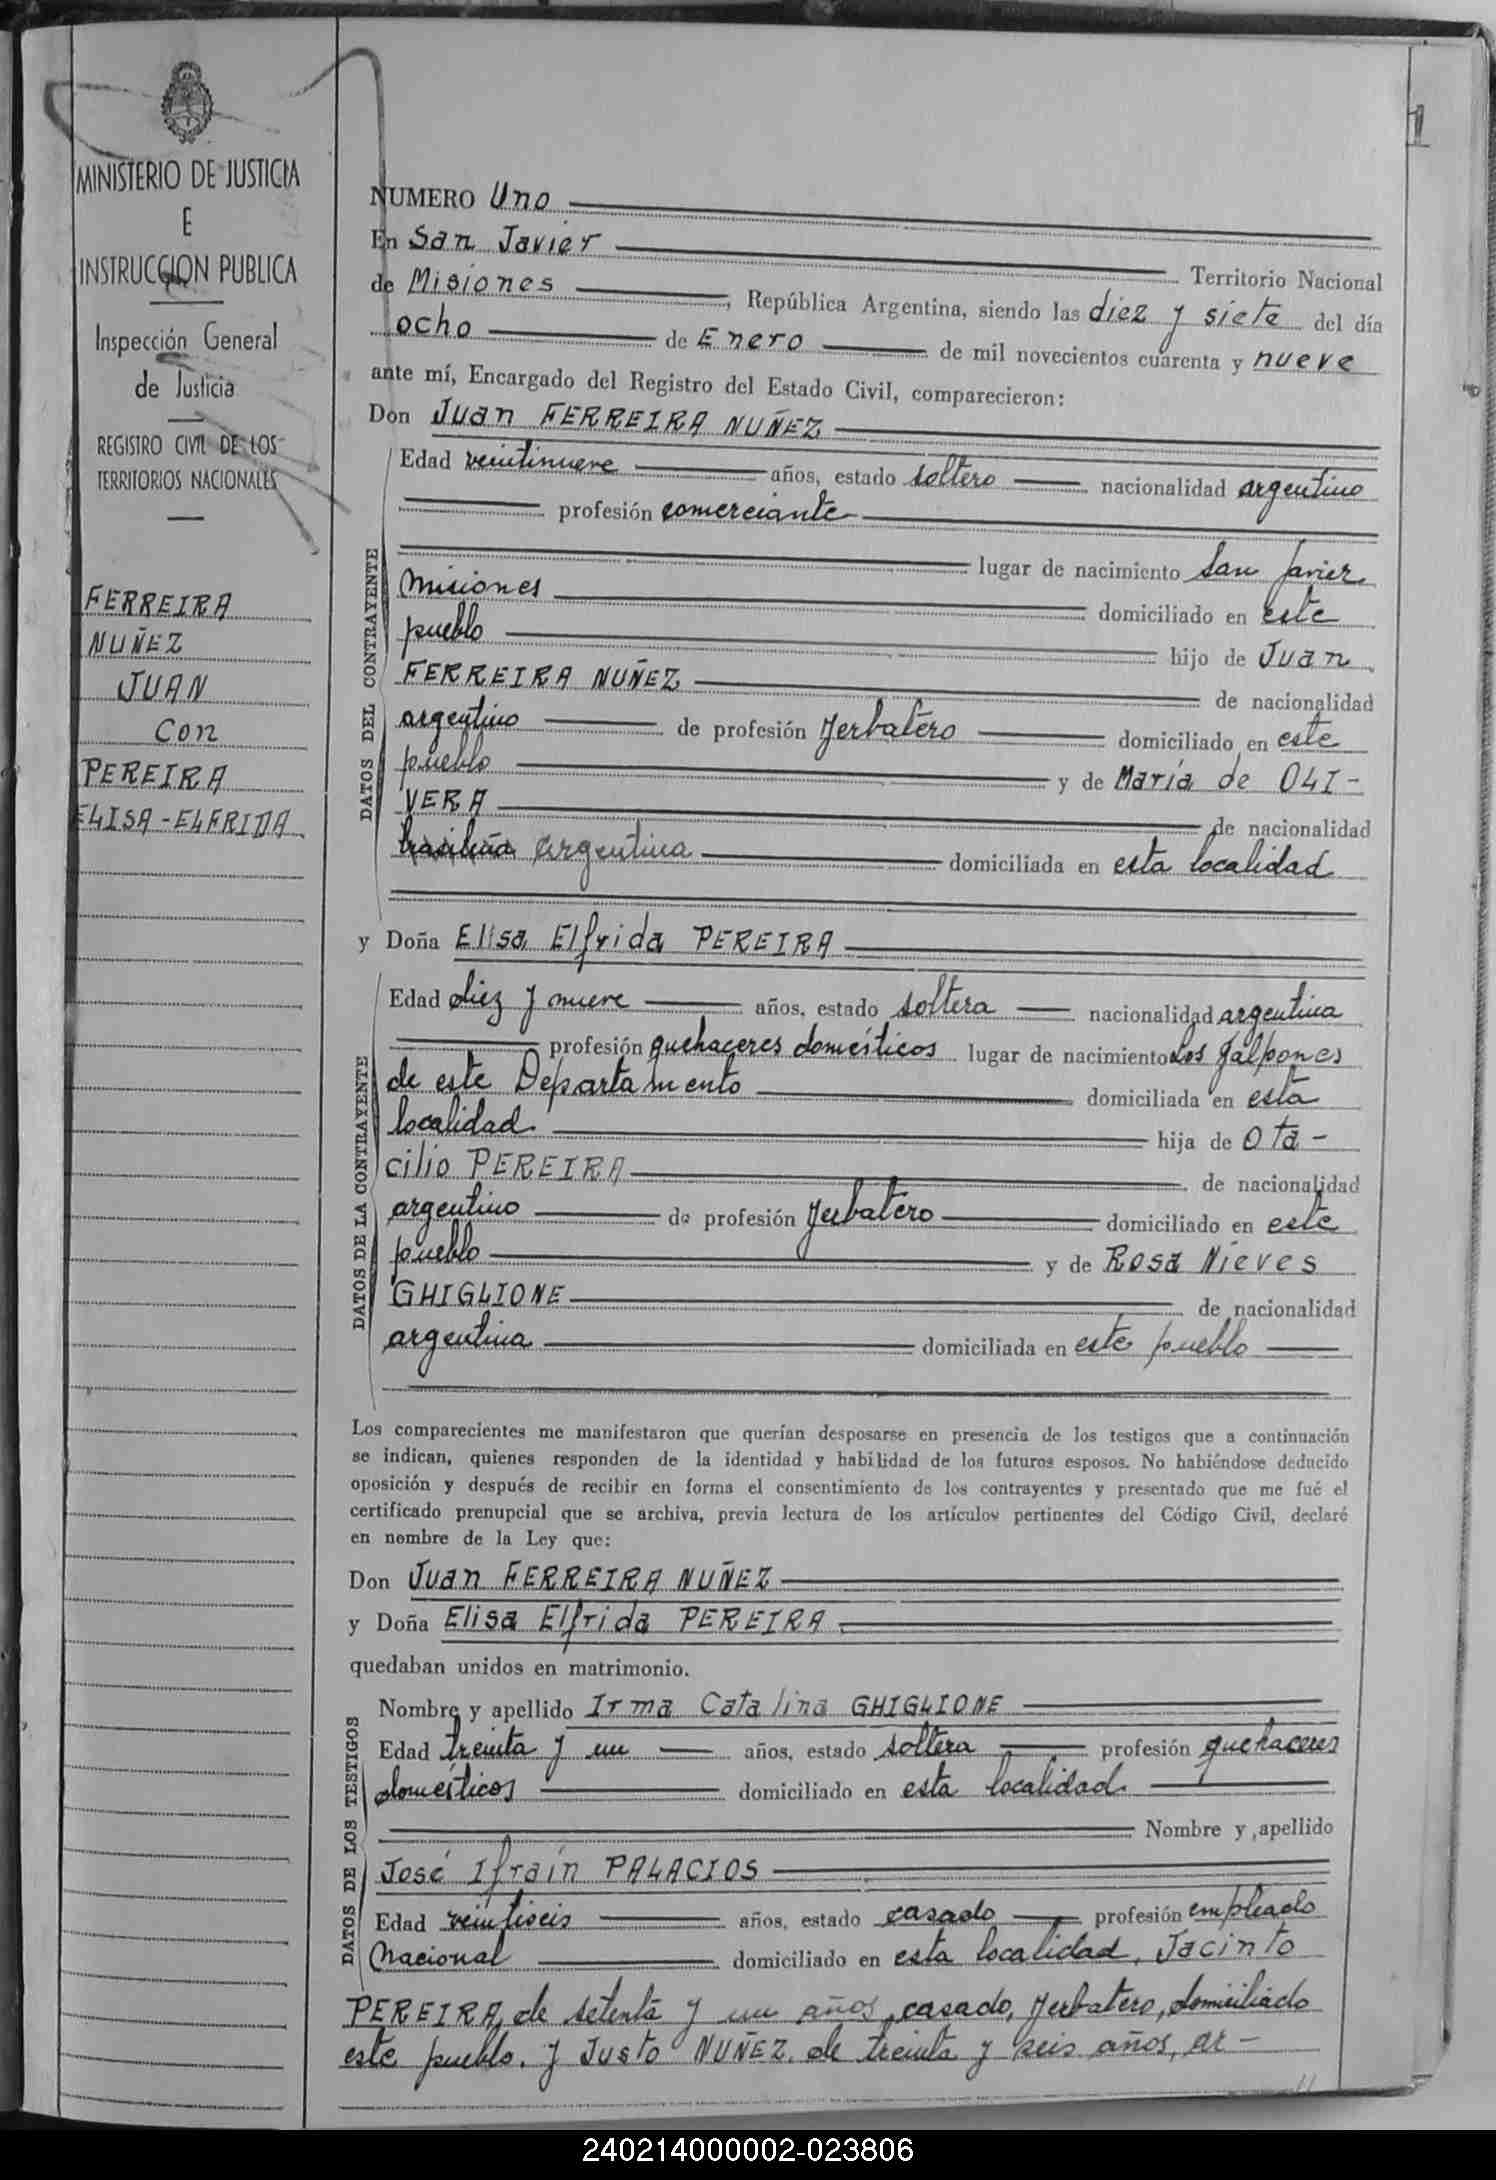 1
MINISTERIO DE JUSTICIA
E
INSTRUCCION PUBLICA
Inspección General
de Justicia
REGISTRO CIVIL DE LOS
TERRITORIOS NACIONALES
FERREIRA
NUÑEZ
JUAN
con
PEREIRA
ELISA-ELFRIDA
NUMERO Uno
En San Javier Territorio Nacional
de Misiones, República Argentina, siendo las diez y siete del día
ocho de Enero de mil novecientos cuarenta y nueve
ante mí, Encargado del Registro del Estado Civil, comparecieron:
Don Juan FERREIRA NUÑEZ
DATOS DEL CONTRAYENTE
Edad veintinueve años, estado soltero nacionalidad argentino
profesión comerciante
lugar de nacimiento San Javier
Misiones domiciliado en este
pueblo hijo de Juan
FERREIRA NUÑEZ de nacionalidad
argentino de profesión Yerbatero domiciliado en este
pueblo y de María de OLI-
VERA de nacionalidad
brasileña argentina domiciliada en esta localidad
y Doña Elisa Elfrida PEREIRA
DATOS DE LA CONTRAYENTE
Edad diez y nueve años, estado soltera nacionalidad argentina
profesión quehaceres domésticos lugar de nacimiento Los Galpones
de este Departamento domiciliada en esta
localidad hija de Ota-
cilio PEREIRA de nacionalidad
argentino de profesión Yerbatero domiciliado en este
pueblo y de Rosa Nieves
GHIGLIONE de nacionalidad
argentina domiciliada en este pueblo
Los comparecientes me manifestaron que querían desposarse en presencia de los testigos que a continuación
se indican, quienes responden de la identidad y habilidad de los futuros esposos. No habiéndose deducido
oposición y después de recibir en forma el consentimiento de los contrayentes y presentado que me fué el
certificado prenupcial que se archiva, previa lectura de los artículos pertinentes del Código Civil, declaré
en nombre de la Ley que:
Don Juan FERREIRA NUÑEZ
y Doña Elisa Elfrida PEREIRA
quedaban unidos en matrimonio.
DATOS DE LOS TESTIGOS
Nombre y apellido Irma Catalina GHIGLIONE
Edad treinta y un años, estado soltera profesión quehaceres
domésticos domiciliado en esta localidad.
Nombre y apellido
José Ifraín PALACIOS
Edad veintiseis años, estado casado profesión empleado
Nacional domiciliado en esta localidad, Jacinto
PEREIRA, de setenta y un años, casado, Yerbatero, domiciliado
este pueblo. y Justo NUÑEZ. de treinta y seis años, ar-
240214000002-023806